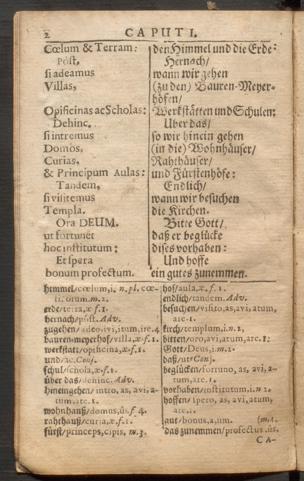 2 CAPUT I.
Cœlum & Terram: den Himmel und die Erde:
Pòst, Hernach/
si adeamus wann wir gehen
Villas, (zu den) Bauren-Meyer-
höfen/
Opificinas ac Scholas: Werkstätten und Schulen:
Dehinc, Uber das/
si intremus so wir hinein gehen
Domos, (in die) Wohnhäuser/
Curias, Rahthäuser/
& Principum Aulas: und Fürstenhöfe:
Tandem, Endlich/
si visitemus wann wir besuchen
Templa. die Kirchen.
Ora DEUM, Bitte Gott/
ut fortunet daß er beglücke
hoc institutum; dises vorhaben:
Et spera Und hoffe
bonum profectum. ein gutes zunemmen.
himmel/cœlum,i. n. pl. cœ-
li, orum. m. 2.
erde/terra,æ f. 1.
hernach/pòst. Adv.
zugehen/adeo,ivi,itum,ire. 4
bauren-meyerhof/villa,æ f. 1.
werkstatt/opificina,æ f. 1.
und/ac. Conj.
schul/schola,æ f. 1.
über das/dehinc. Adv.
hineingehen/intro, as, avi, a-
tum, are. 1.
wohnhauß/domus,ûs. f. 4.
rahthauß/curia,æ f. 1.
fürst/princeps,cipis, m. 3.
hof/aula,æ f. 1.
endlich/tandem. Adv.
besuchen/visito,as,avi,atum,
are. 1.
kirch/templum,i. n. 2.
bitten/oro,avi,atum,are. 1.
Gott/Deus,i. m. 2.
daß/ut. Conj.
beglücken/fortuno, as, avi, a-
tum, are. 1.
vorhaben/institutum,i. n. 2.
hoffen/spero, as, avi, atum,
are. 1.
gut/bonus,a,um.
das zunemmen/profectus,ûs.
CA-